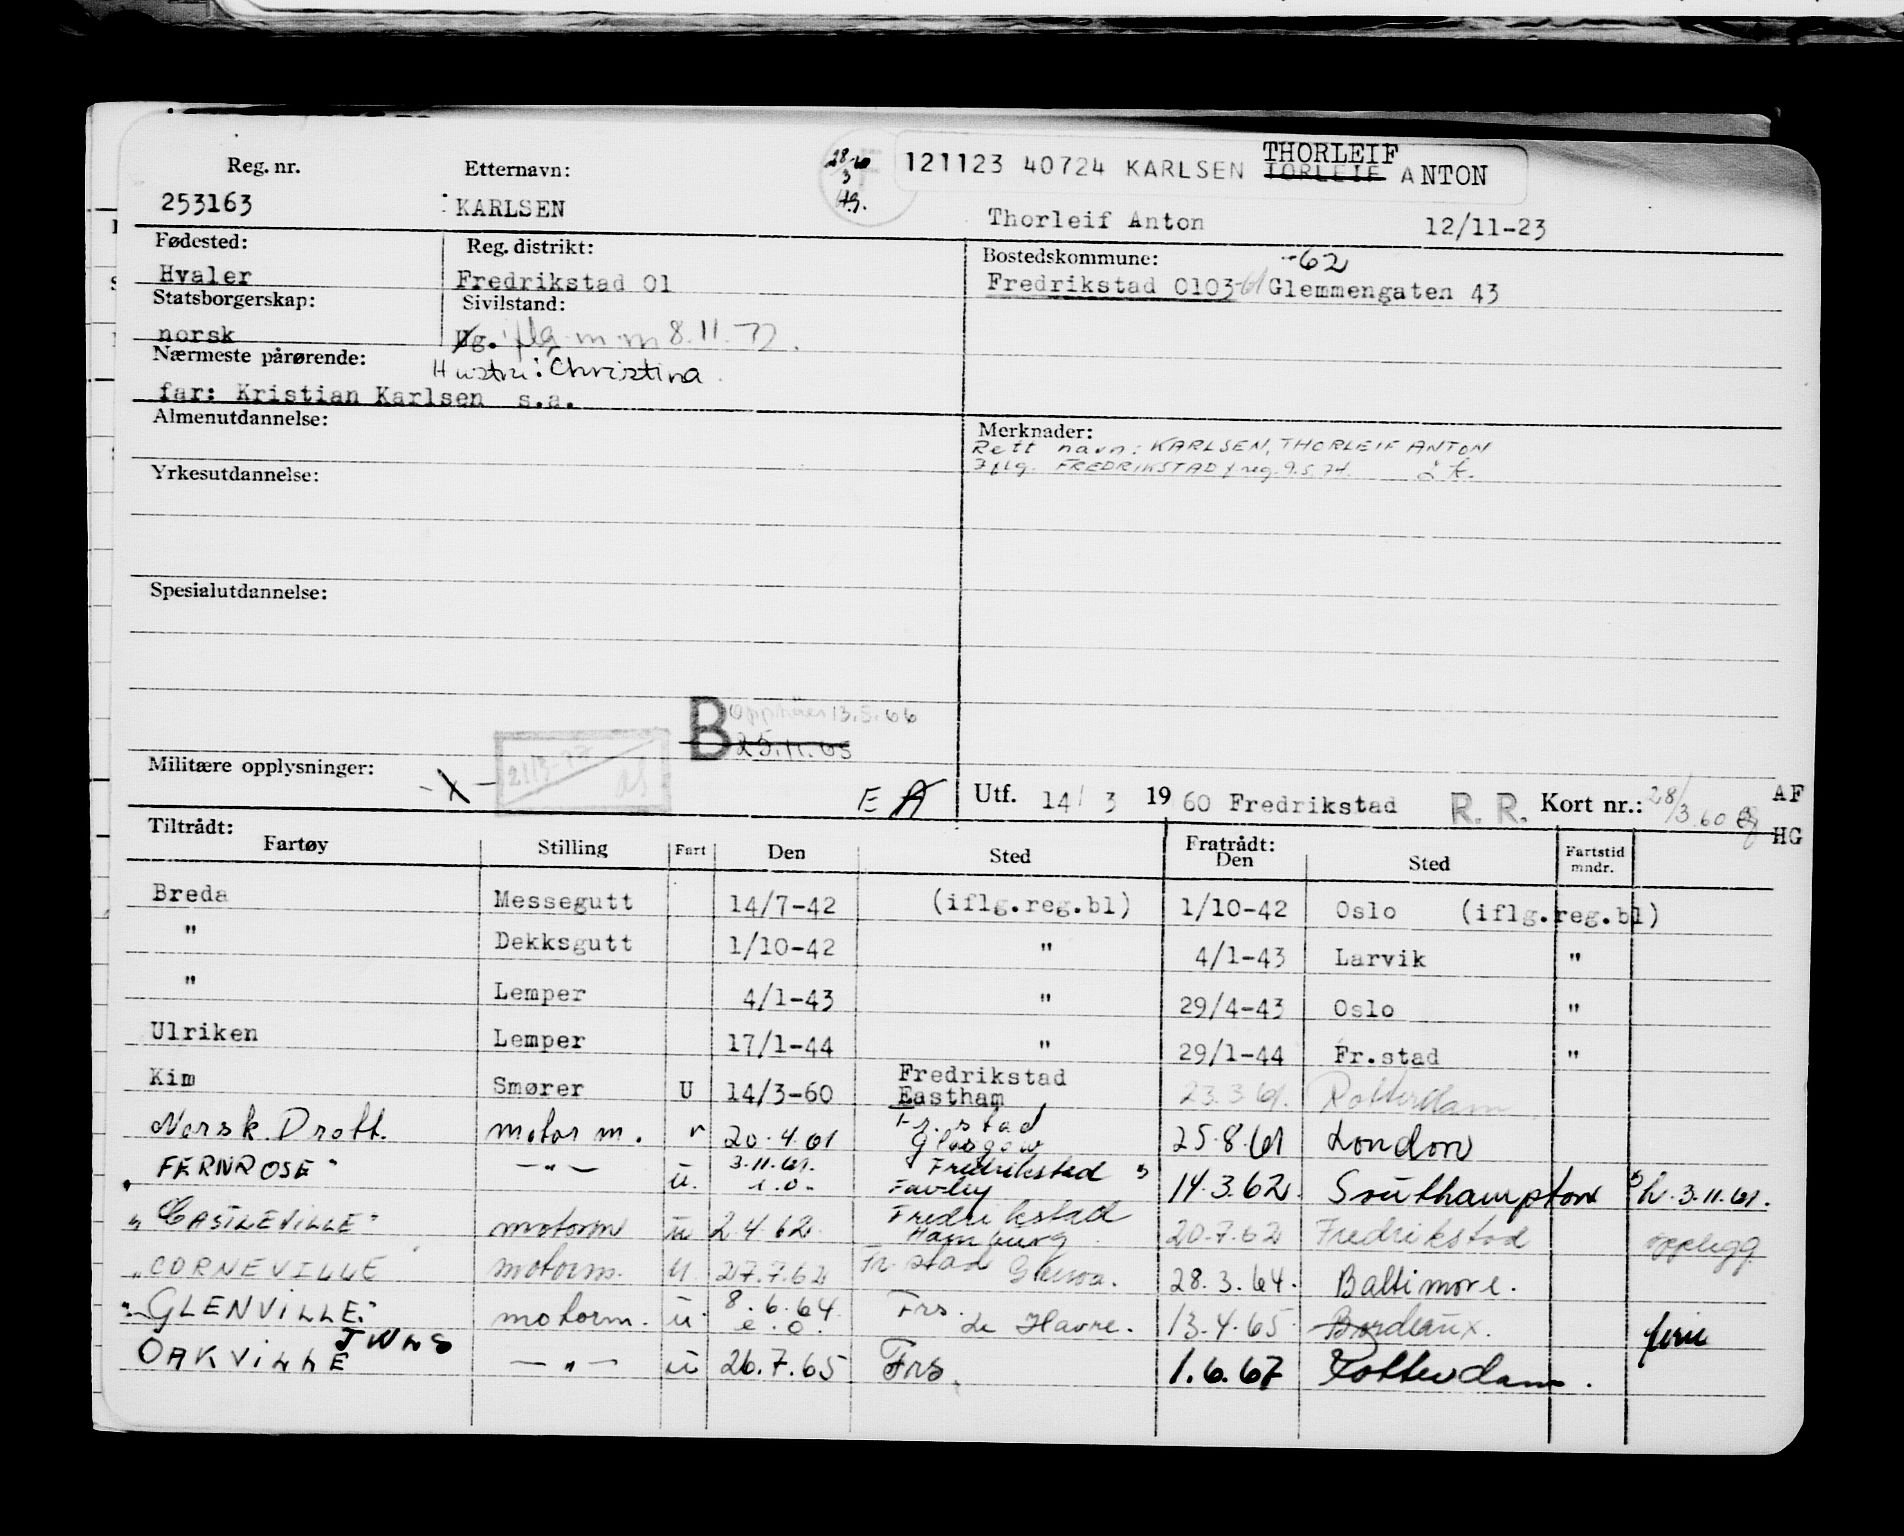 Reg. nr. Etternavn: 28/3-60 Hg. 121123 40724 KARLSEN THORLEIF TORLEIF ANTON
253163 KARLSEN Thorleif Anton 12/11-23
Fødested: Reg. distrikt: Bostedskommune: -62
Hvaler Fredrikstad 01 Fredrikstad 0103-61 Glemmengaten 43
Statsborgerskap: Sivilstand:
norsk Ug. iflg m.m 8.11.72.
Nærmeste pårørende: Hustru: Christina
far: Kristian Karlsen s.a.
Almenutdannelse: Merknader:
Rett navn: KARLSEN, THORLEIF ANTON
Iflg. FREDRIKSTAD f.reg. 9.5.74.
Yrkesutdannelse:
Spesialutdannelse:
B 13.5.66
25.11.65
Militære opplysninger: -X-
E A Utf. 14/ 3 1960 Fredrikstad R. R. Kort nr.: 28/3.60 AF
HG
Tiltrådt: Fratrådt:
Fartøy Stilling Fart Den Sted Den Sted Fartstid mndr.
Breda Messegutt 14/7-42 (iflg.reg.bl) 1/10-42 Oslo (iflg.reg.bl)
" Dekksgutt 1/10-42 " 4/1-43 Larvik "
" Lemper 4/1-43 " 29/4-43 Oslo "
Ulriken Lemper 17/1-44 " 29/1-44 Fr.stad "
Kim Smører U 14/3-60 Fredrikstad Eastham 23.3.61. Rotterdam
Norsk Drott. motor m. 20.4.61 Fr.stad Glasgow 25.8.61 London
"FERNROSE" —"— u. 3.11.61. e.o. Fredrikstad Fawley 14.3.62. Southampton 3.11.61.
"CASTLEVILLE" motorm u 2.4.62. Fredrikstad Hamburg 20.7.62 Fredrikstad opplegg
"CORNEVILLE motorm. u 27.7.62 Fr.stad Genoa. 28.3.64. Baltimore.
"GLENVILLE" motorm. u. 8.6.64. e.o. Frs. Le Havre. 13.4.65 Bordeaux. ferie
JWLS
OAKVILLE —"— u 26.7.65 Frs. 1.6.67 Rotterdam.